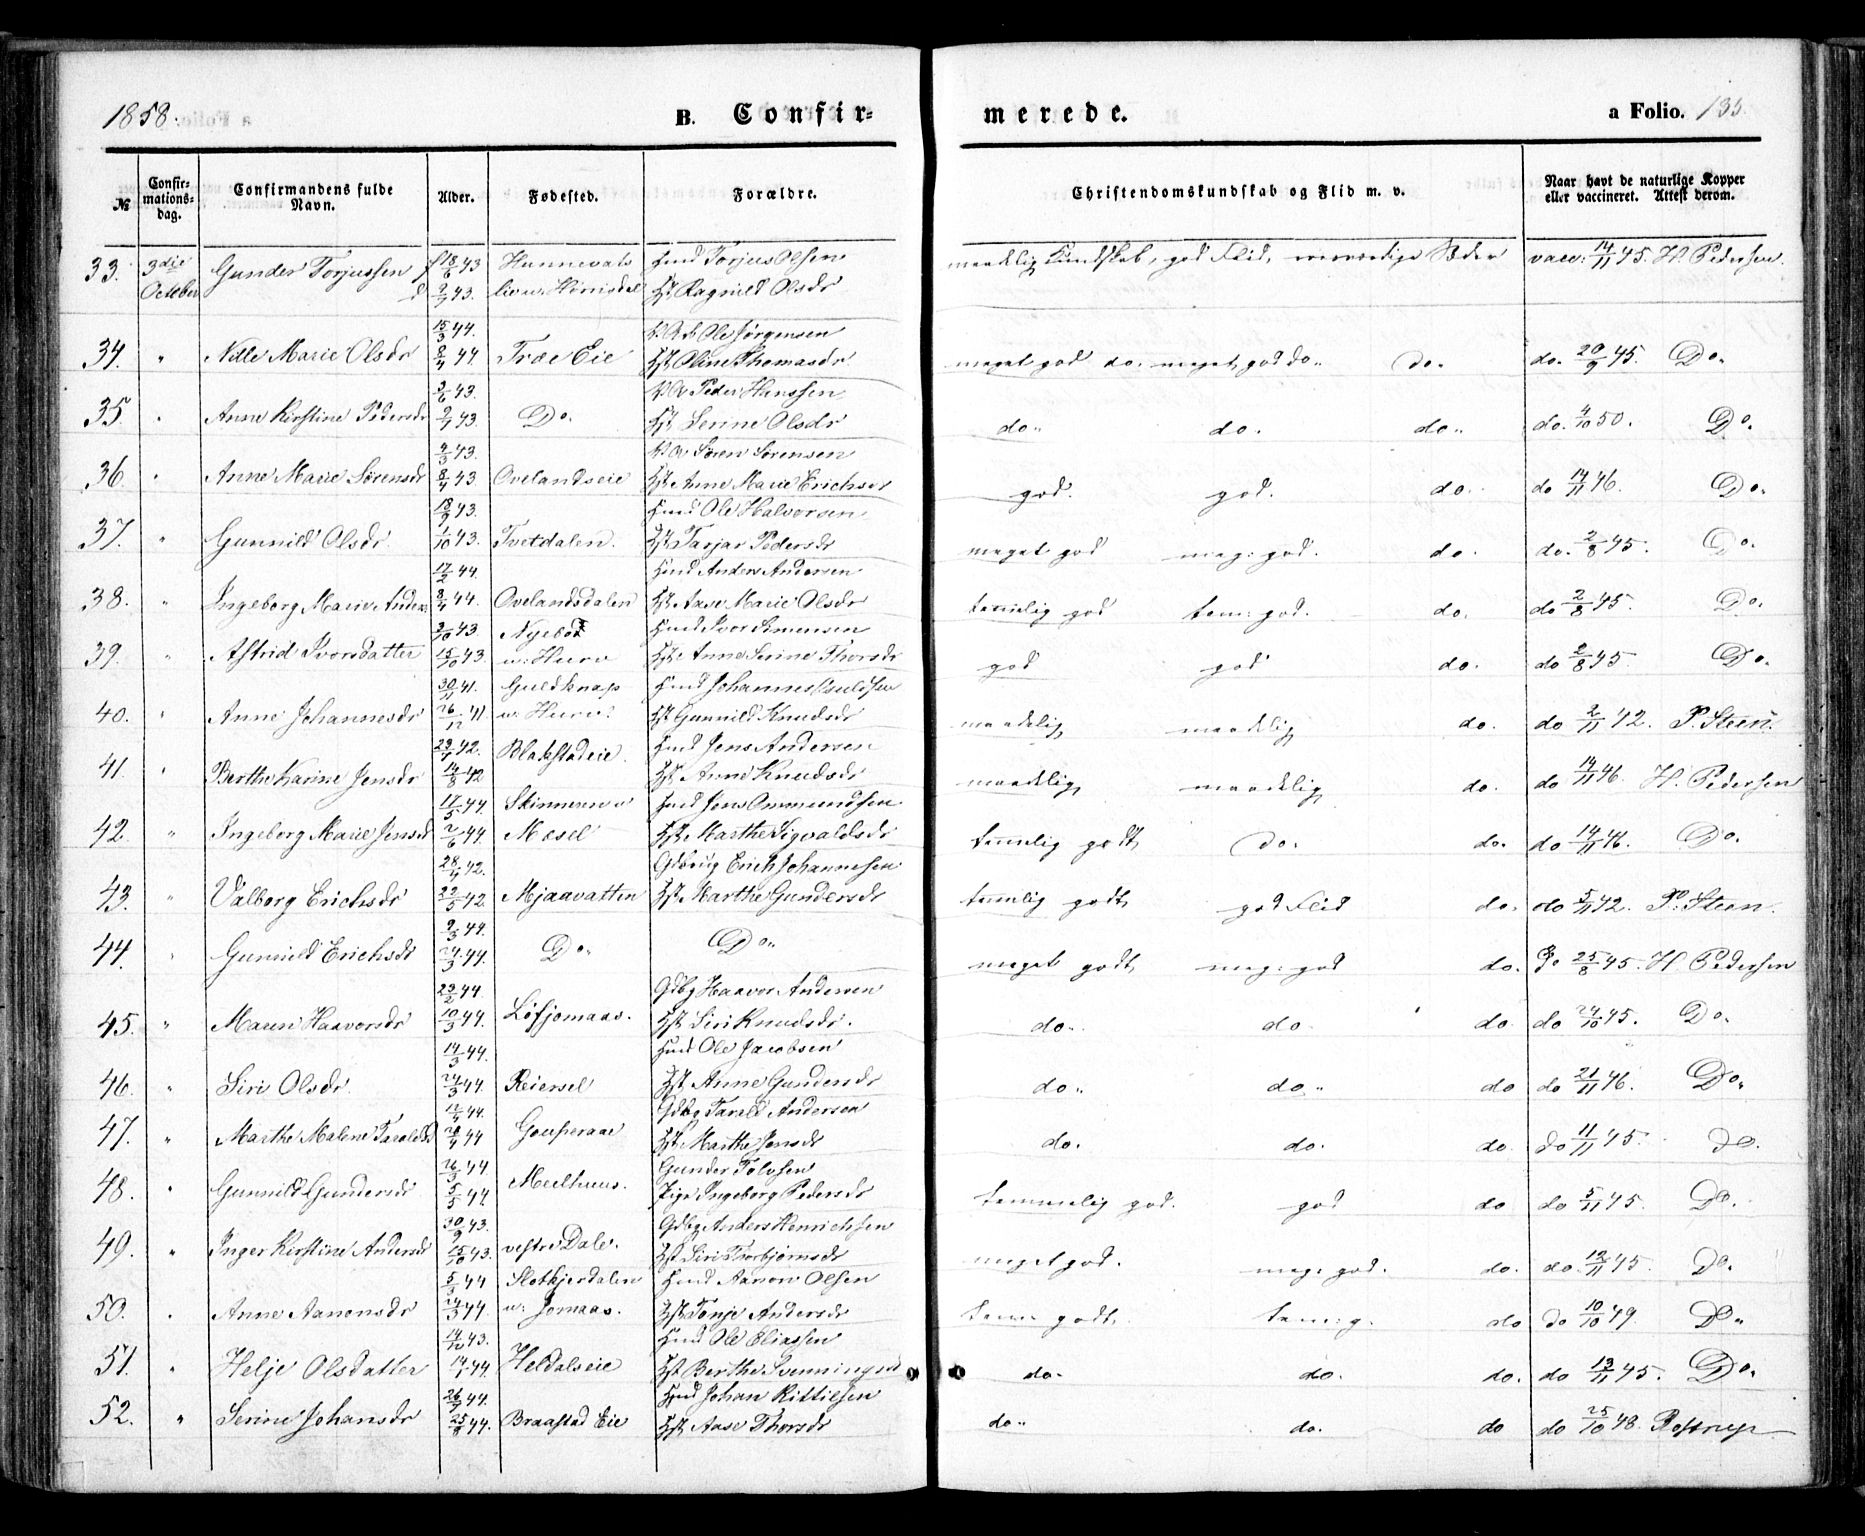 1858.
B. Confir=
merede.
a Folio. 135.
№
Confir=
mations=
dag.
Confirmandens fulde
Navn.
Alder.
Fødested.
Forældre.
Christendomskundskab og Flid m. v.
Naar havt de naturlige Kopper
eller vaccineret. Attest derom.
33. 3die October Gunder Torjussen f 18/6 43 d 2/7 43. Hunnevats Hmd Torjus Olsen Hst Ragnild Olsdr maadelig Kundskab, god Flid, Sæder vacc: 14/11 45. H. Pedersen.
34. " Nille Marie Olsdr 15/3 44. 8/4 44. Træ Eie Ole Jørgensen Hst Oline Thomasdr meget god do. meget god do.. do. do. 20/9 45. Do.
35 " Anne Kirstine Pedersdr 3/6 43. 9/7 43. Do. Peder Hanssen Hst Senne Olsdr do.. do. do.. do. 4/10 50. Do.
36. " Anne Marie Sørensdr 4/3 43. 8/4 43 Ovelandseie Søren Sørensen Hst Anne Marie Erichsdr god. god. do. do 14/11 46. Do.
37. " Gunnild Olsdr. 18/9 43. 1/10 43. Tvetdalen. Hmd Ole Halvorsen Hst Tarjer Pedersdr meget god meg: god. do. do. 2/8 45. Do.
38. " Ingeborg Marie Anders 17/2 44. 8/4 44. Ovelandsdalen Hmd Anders Andersen Hst Aase Marie Olsdr temelig god tem: god. do. do 2/8 45. Do.
39. " Astrid Iversdatter 3/10 43. 15/10 43. Nyebød u: Hurv Hmd Iver Simensen Hst Anne Serine Thorsdr god god do. do 2/8 45. Do.
40. " Anne Johannesdr 30/11 41. 26/12 41. Guldknap u: Hurv. Hmd Johannes Hst Gunnild Knudsdr maadelig maadelig do. do 2/11 42. P. Steen.
41. " Berthe Karine Jensdr 29/7 42. 14/8 42 Blakstadeie. Hmd Jens Andersen Hst Anne Knudsdr maadelig maadelig do. do 14/11 46. H. Pedersen
42. " Ingeborg Marie Jensdr 17/5 44. 2/6 44. Mosel Hmd Jens Ommundsen Hst Marthe Sigvaldsdr temelig godt do. do. do 14/11 46. Do.
43. " Valborg Erichsdr 28/4 42. 22/5 42. Mjaavatten Gdbrug Erich Johannesen Hst Marthe Gundersdr temelig godt god Flid do. do 5/11 42. P. Steen.
44. " Gunnild Erichsdr 9/3 44. 24/3 44. Do.. Do.. meget godt meg: god do. Do 25/8 45. H. Pedersen
45. " Maren Haavorsdr 23/2 44. 10/3 44. Løfjomaas. Gdbg Haavor Andersen Hst Siri Knudsdr. do.. do. do do 24/10 45. Do.
46. " Siri Olsdr. 14/3 44. 24/3 44. Reiersel Hmd Ole Jacobsen Hst Anne Gundersdr do.. do.. do do 21/11 46. Do..
47. " Marthe Malene Taraldsd 12/4 44. 28/4 44 Gouperaae Gdbg Tarald Andersen Hst Marthe Jensdr do. do. do do 11/11 45. do.
48. " Gunnild Gundersdr 26/3 44 5/5 44. Meelhuus. Gunder Tolvsen Pige Ingeborg Pedersdr temmelig god. god do do 5/11 45. Do.
49. " Inger Kirstine Andersdr 30/9 43. 15/10 43. vestre Dale. Gdbg Anders Henrichsen Hst Siri Thorbjørnsdr meget god. meg: god. do. do. 12/11 45. Do.
50. " Anne Aanonsdr 5/3 44 24/3 44. Slotkjerdalen u: Jomaas. Hmd Aanon Olsen Hst Tonje Andersdr tem: godt. tem: g. do do 10/10 49 Do..
51. " Helje Olsdatter 14/10 43. 14/1 44. Heldalseie Hmd Ole Eliassen Hst Berthe Svenningsd do. do. do. do 13/11 45. Do.
52. " Serine Johansdr 26/7 44. 25/8 44. Braastad Eie Hmd Johan Kittilsen Hst Aase Thorsdr do.. do. do do 25/10 48. Rostrup